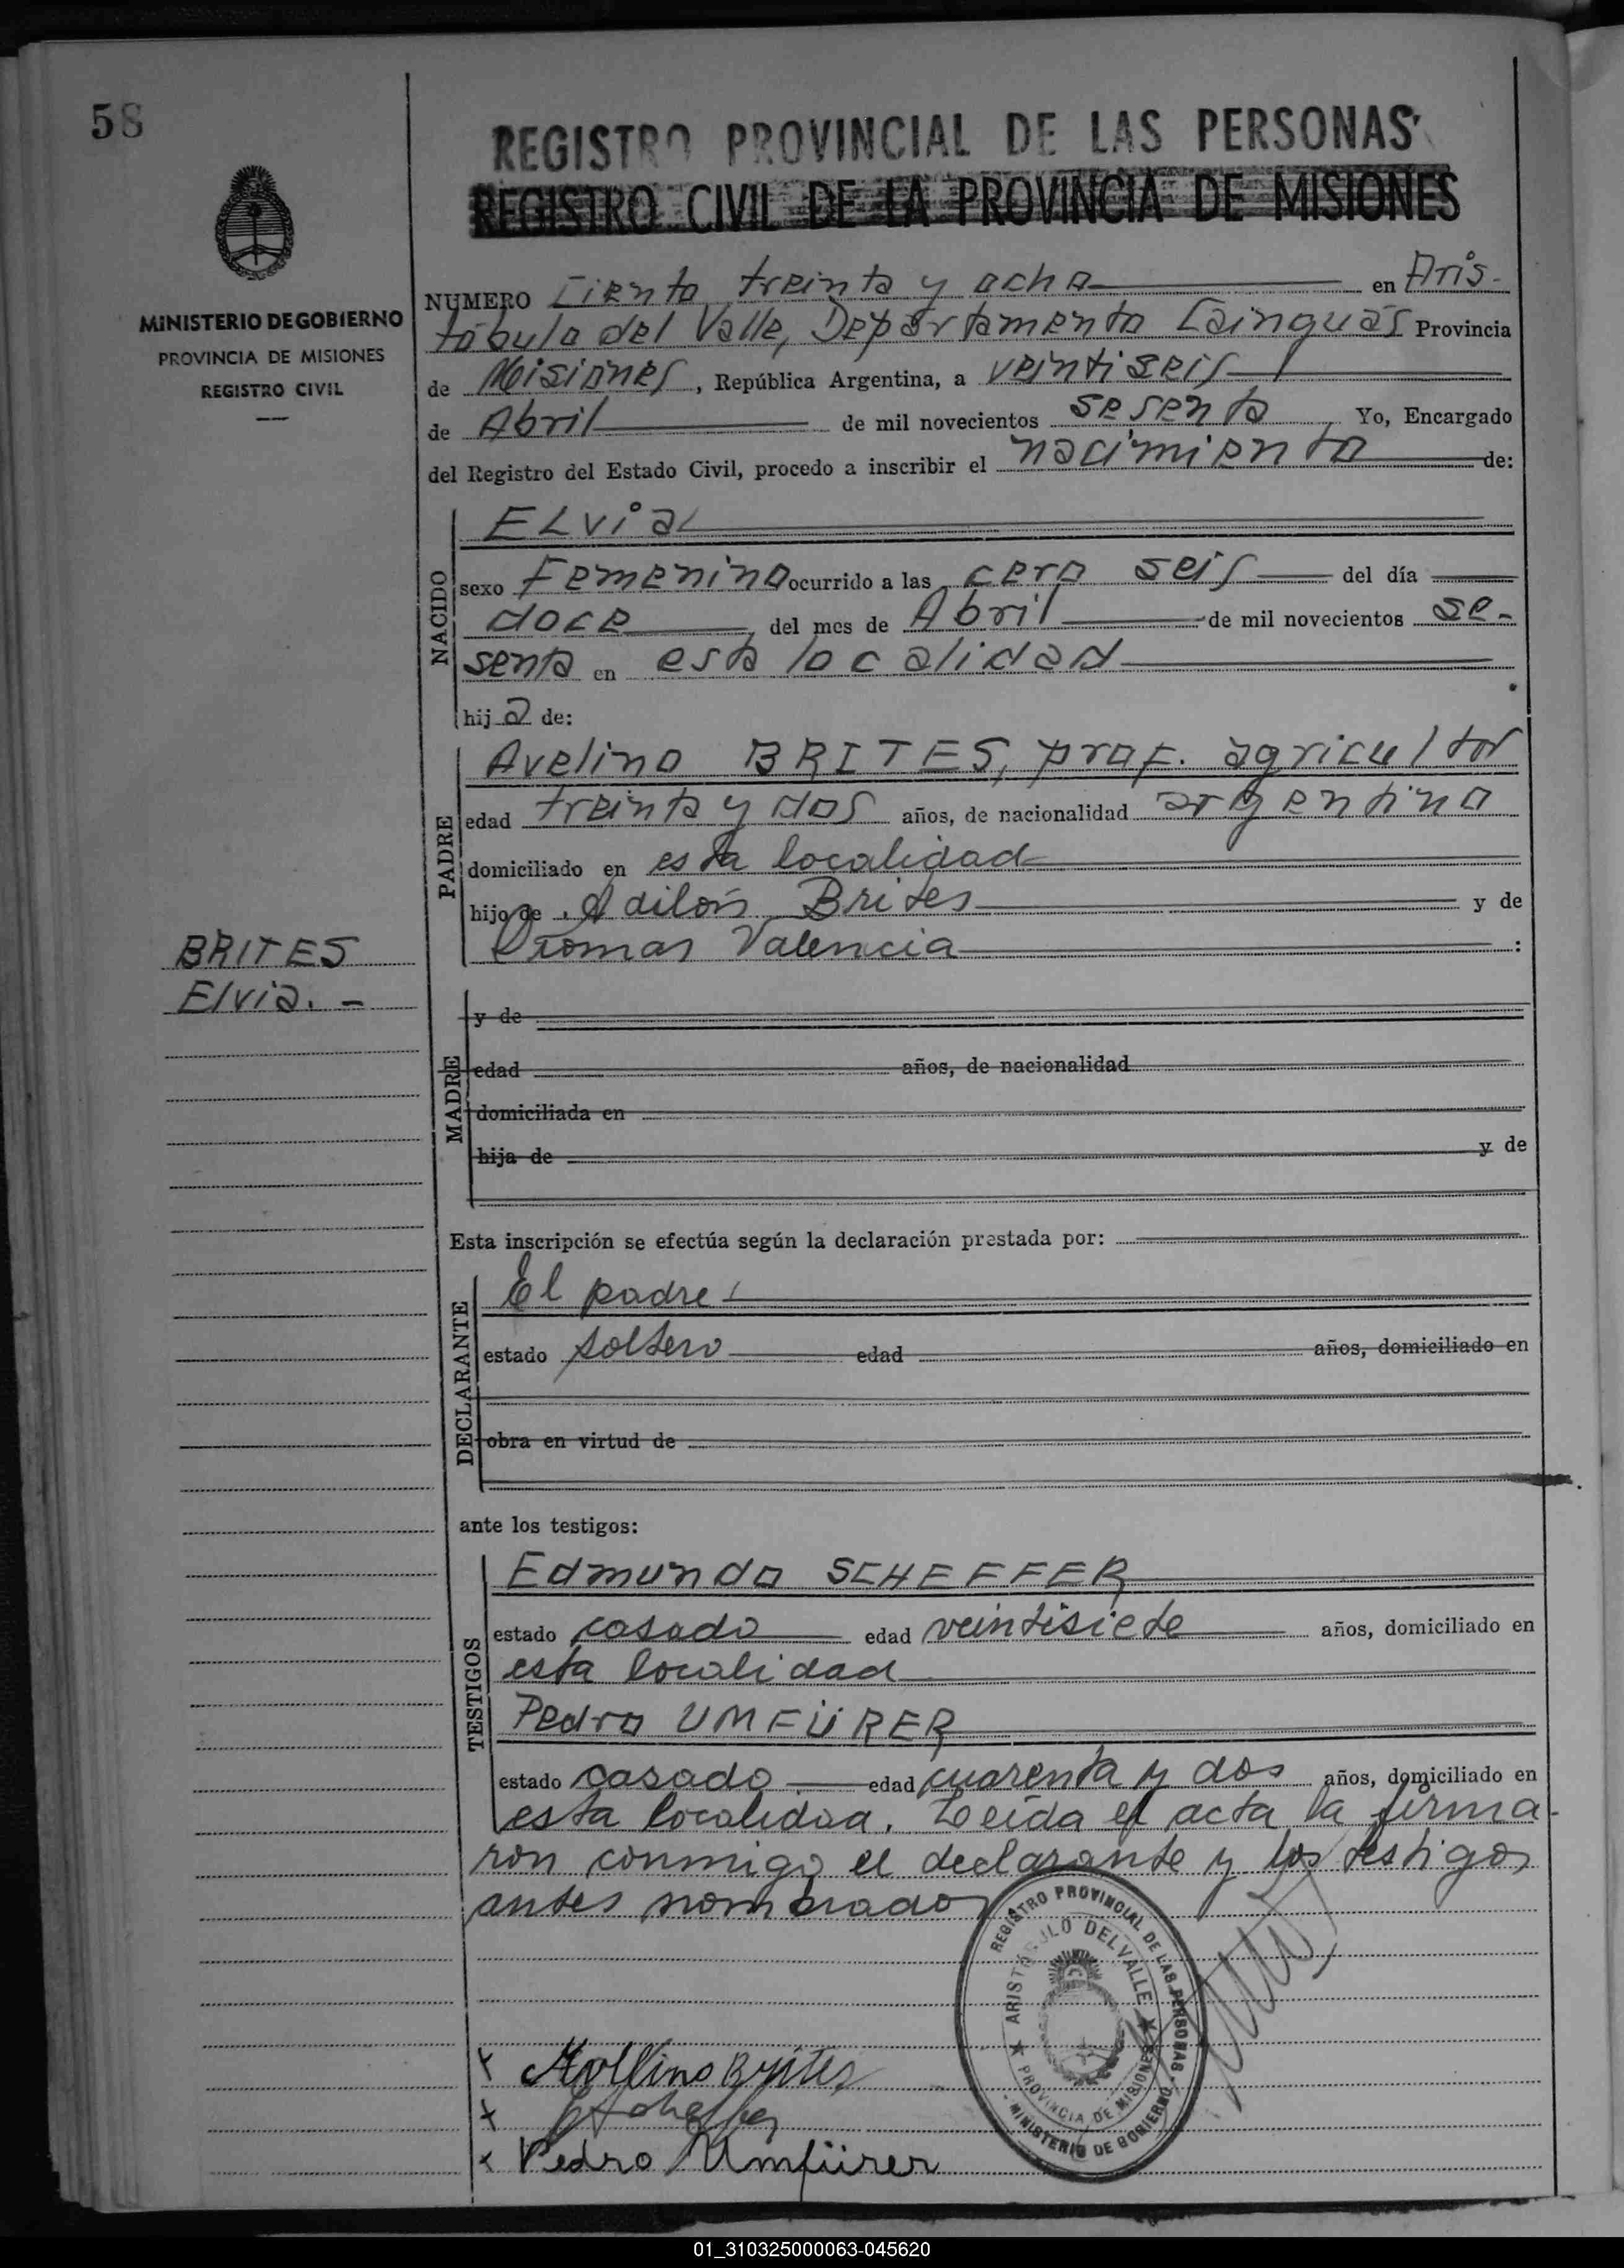 58
REGISTRO PROVINCIAL DE LAS PERSONAS
REGISTRO CIVIL DE LA PROVINCIA DE MISIONES
MINISTERIO DE GOBIERNO
PROVINCIA DE MISIONES
REGISTRO CIVIL
NUMERO Ciento treinta y ocho en Aris-
tóbulo del Valle, Departamento Cainguás Provincia
de Misiones, República Argentina, a veintiseis
de Abril de mil novecientos sesenta Yo, Encargado
del Registro del Estado Civil, procedo a inscribir el nacimiento de:
NACIDO
ELvia
sexo Femenino ocurrido a las cero seis del día
doce del mes de Abril de mil novecientos se-
senta en esta localidad
hija de:
PADRE
Avelino BRITES, prof. agricultor
edad treinta y dos años, de nacionalidad argentino
domiciliado en esta localidad
hijo de Adilón Brites y de
Valencia :
BRITES
Elvia. -
MADRE
y de
edad años, de nacionalidad
domiciliada en
hija de y de
Esta inscripción se efectúa según la declaración prestada por:
DECLARANTE
El padre
estado soltero edad años, domiciliado en
obra en virtud de
ante los testigos:
TESTIGOS
Edmundo SCHEFFER
estado casado edad veintisiete años, domiciliado en
esta localidad
Pedro UMFÜRER
estado casado edad cuarenta y dos años, domiciliado en
esta localidad. Leída el acta la firma-
ron conmigo el declarante y los testigos
antes nombrados
REGISTRO PROVINCIAL DE LAS PERSONAS
ARISTÓBULO DEL VALLE
PROVINCIA DE MISIONES
MINISTERIO DE GOBIERNO
x Avellino Brites
x
x Pedro Umfürer
01_310325000063-045620